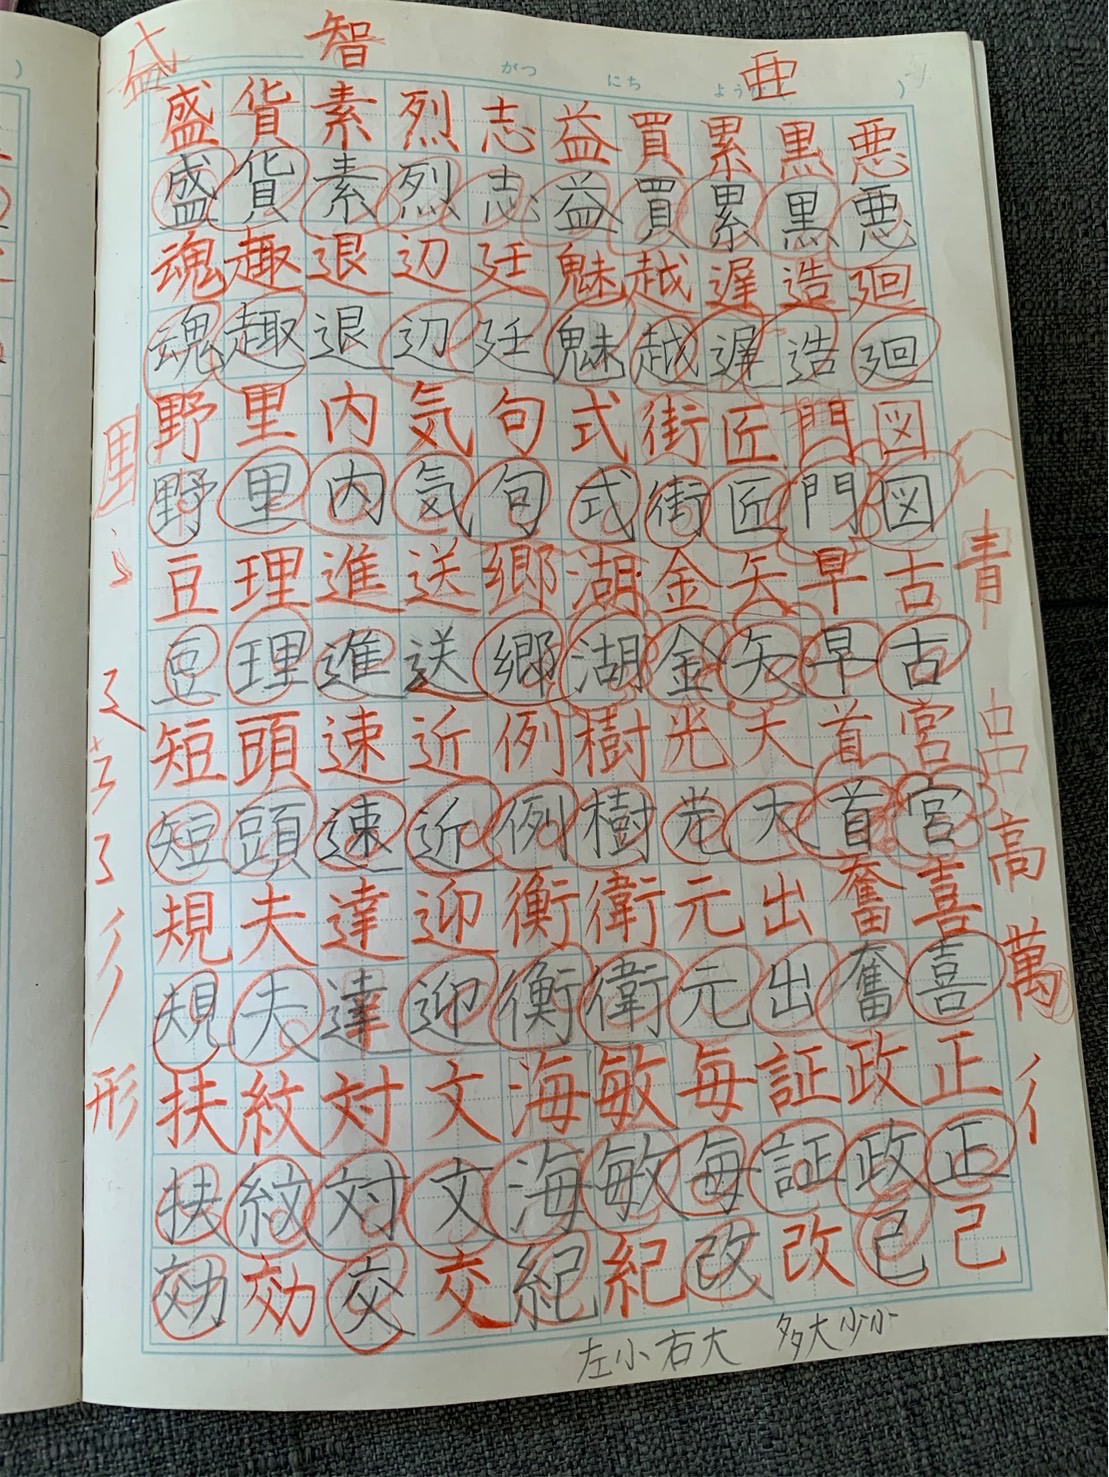 盛 智 亜
がつ にち よう
盛 貨 素 烈 志 益 買 累 黒 悪
盛 貨 素 烈 志 益 買 累 黒 悪
魂 趣 退 辺 廷 魅 越 遅 造 廻
魂 趣 退 辺 廷 魅 越 遅 造 廻
野 里 内 気 句 式 街 匠 門 図
野 里 内 気 旬 式 街 匠 門 図
豆 理 進 送 郷 湖 金 矢 早 古
青
豆 理 進 送 郷 湖 金 矢 早 古
短 頭 速 近 例 樹 光 大 首 宮
短 頭 速 近 例 樹 光 大 首 宮
高
規 夫 達 迎 衡 衛 元 出 奮 喜
萬
規 夫 達 迎 衡 衛 元 出 奮 喜
扶 紋 対 文 海 敏 毎 証 政 正
形
彳
扶 紋 対 文 海 敏 毎 証 政 正
効 効 交 交 紀 紀 改 改 己 己
左小右大 多大少小